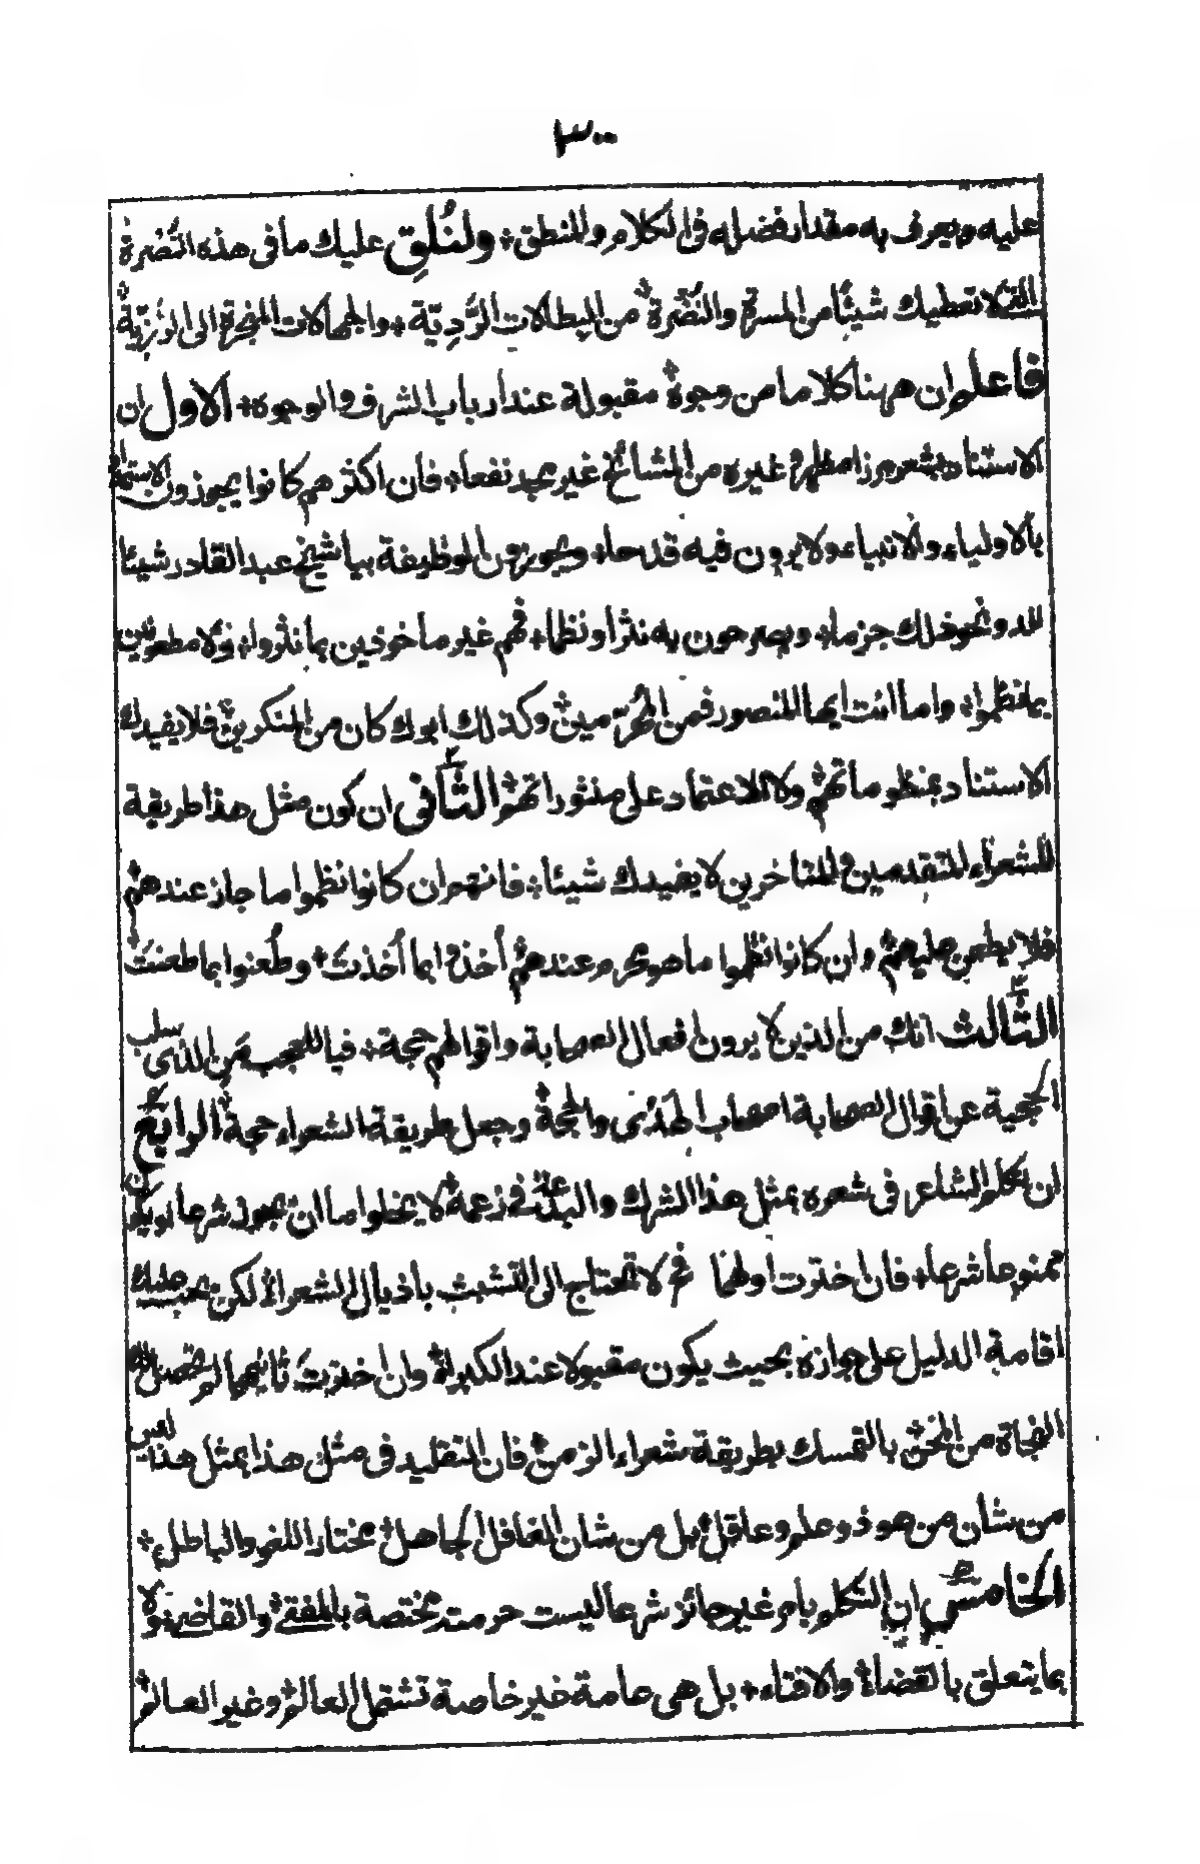 ٣٠٠
عليه ويعرف به مقدار فضله فى الكلام والمنطق ولنُلقِ عليك ما فى هذه النُّصرة
التى لا تعطيك شيئًا من المسرة والنُّضرة من البطالات الرَّدِيّة والجهالات المنجرة الى
فاعلم ان ههنا كلاما من وجوه مقبولة عند ارباب الشرف والوجوه الاول ان
الاستناد بشعر مرزا مظهر وغيره من المشائخ غير مجيد نفعا فان اكثرهم كانوا يجوزون الاستمداد
بالاولياء والانبياء ولا يرون فيه قدحا ويجوزون الوظيفة بيا شيخ عبد القادر شيئا
لله ونحو ذلك جزما ويصرحون به نثرا ونظما فهم غير ماخوذين بما نثروا ولا مطعونين
بما نظموا واما انت ايها المنصور فمن المحرّمين وكذلك ابوك كان من المنكرين فلا يفيدك
الاستناد بمنظوماتهم ولا الاعتماد على منثوراتهم الثانى ان كون مثل هذا طريقة
للشعراء المتقدمين والمتاخرين لا يفيدك شيئا فانهم ان كانوا نظموا ما جاز عندهم
فلا يطعن عليهم وان كانوا نظموا ما هو محرم عندهم أخذوا بما أخذت وطُعنوا بما طعنت
الثالث انك من الذين لا يرون افعال الصحابة واقوالهم حجة فيا للعجب من الذى سلب
الحجية عن اقوال الصحابة اصحاب الهدى والحجة وجعل طريقة الشعراء حجة الرابع
ان تكلم الشاعر فى شعره بمثل هذا الشرك والبدعة فى زعمه لا يخلو اما ان يجوز شرعا او يكون
ممنوعا شرعا فان اخترت اولهما فح لا تحتاج الى التشبث باذيال الشعراء لكن يجب عليك
اقامة الدليل على جوازه بحيث يكون مقبولا عند الكبراء وان اخترت ثانيهما لم تحصل لك
النجاة من المحن بالتمسك بطريقة شعراء الزمن فان التقليد فى مثل هذا بمثل هذا ليس
من شان من هو ذو علم وعاقل بل من شان الغافل الجاهل مختار اللغو والباطل
الخامس ان التكلم بامر غير جائز شرعا ليست حرمته مختصة بالمفتى والقاضى ولا
بما يتعلق بالقضاء والافتاء بل هى عامة غير خاصة تشتمل العالم وغير العالم